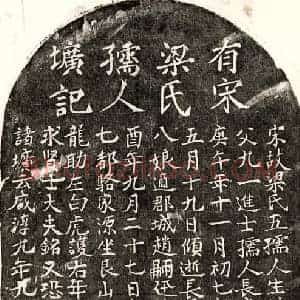 有宋
梁氏
孺人
壙記
宋故梁氏五孺人生
父九一進士孺人長
庚午年十一月初七
五月十九日傾逝長
八娘適郡城趙嗣
酉年九月二十七日
七都駱家源坐艮山
龍助左白虎護右年
求賢士大夫銘又恐
諸壙云咸淳九年九